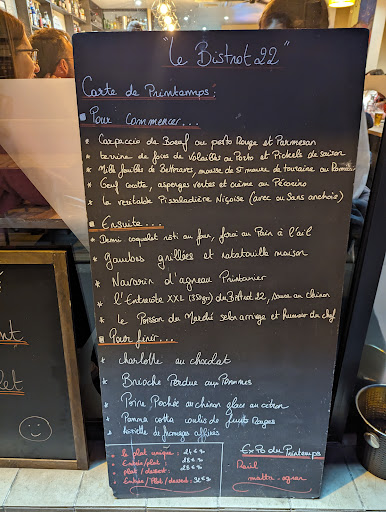 "Le Bistrot 22"
Carte de Printamps:
Pour Commencer...
* Carpaccio de Boeuf au pesto Rouge et Parmesan
* terrine de foies de Volailles au Porto et Pickels de saison
* Mille feuilles de Betteraves, mousse de St maure de touraine au
* Oeuf cocotte, asperges vertes et crème au Pécorino
* la veritable Pissaladière Niçoise (avec ou sans anchois)
Ensuite...
* Demi coquelet rôti au four, farci au Pain à l'ail
* Gambas grillées et ratatouille maison
* Navarin d'agneau Printanier
* l'Entrecôte XXL (350gr) du Bistrot 22, sauce au
* le Poisson du Marché selon arrivage et humeur du chef
Pour finir...
* charlotte au chocolat
* Brioche Perdue aux Pommes
* Poire Pochée au glace au citron
* Panna cotta coulis de fruits Rouges
* Assiette de fromages affinés
le plat unique:
Entrée/plat:
plat/dessert:
Entrée/Plat/dessert: 32€
Expo du Printemps